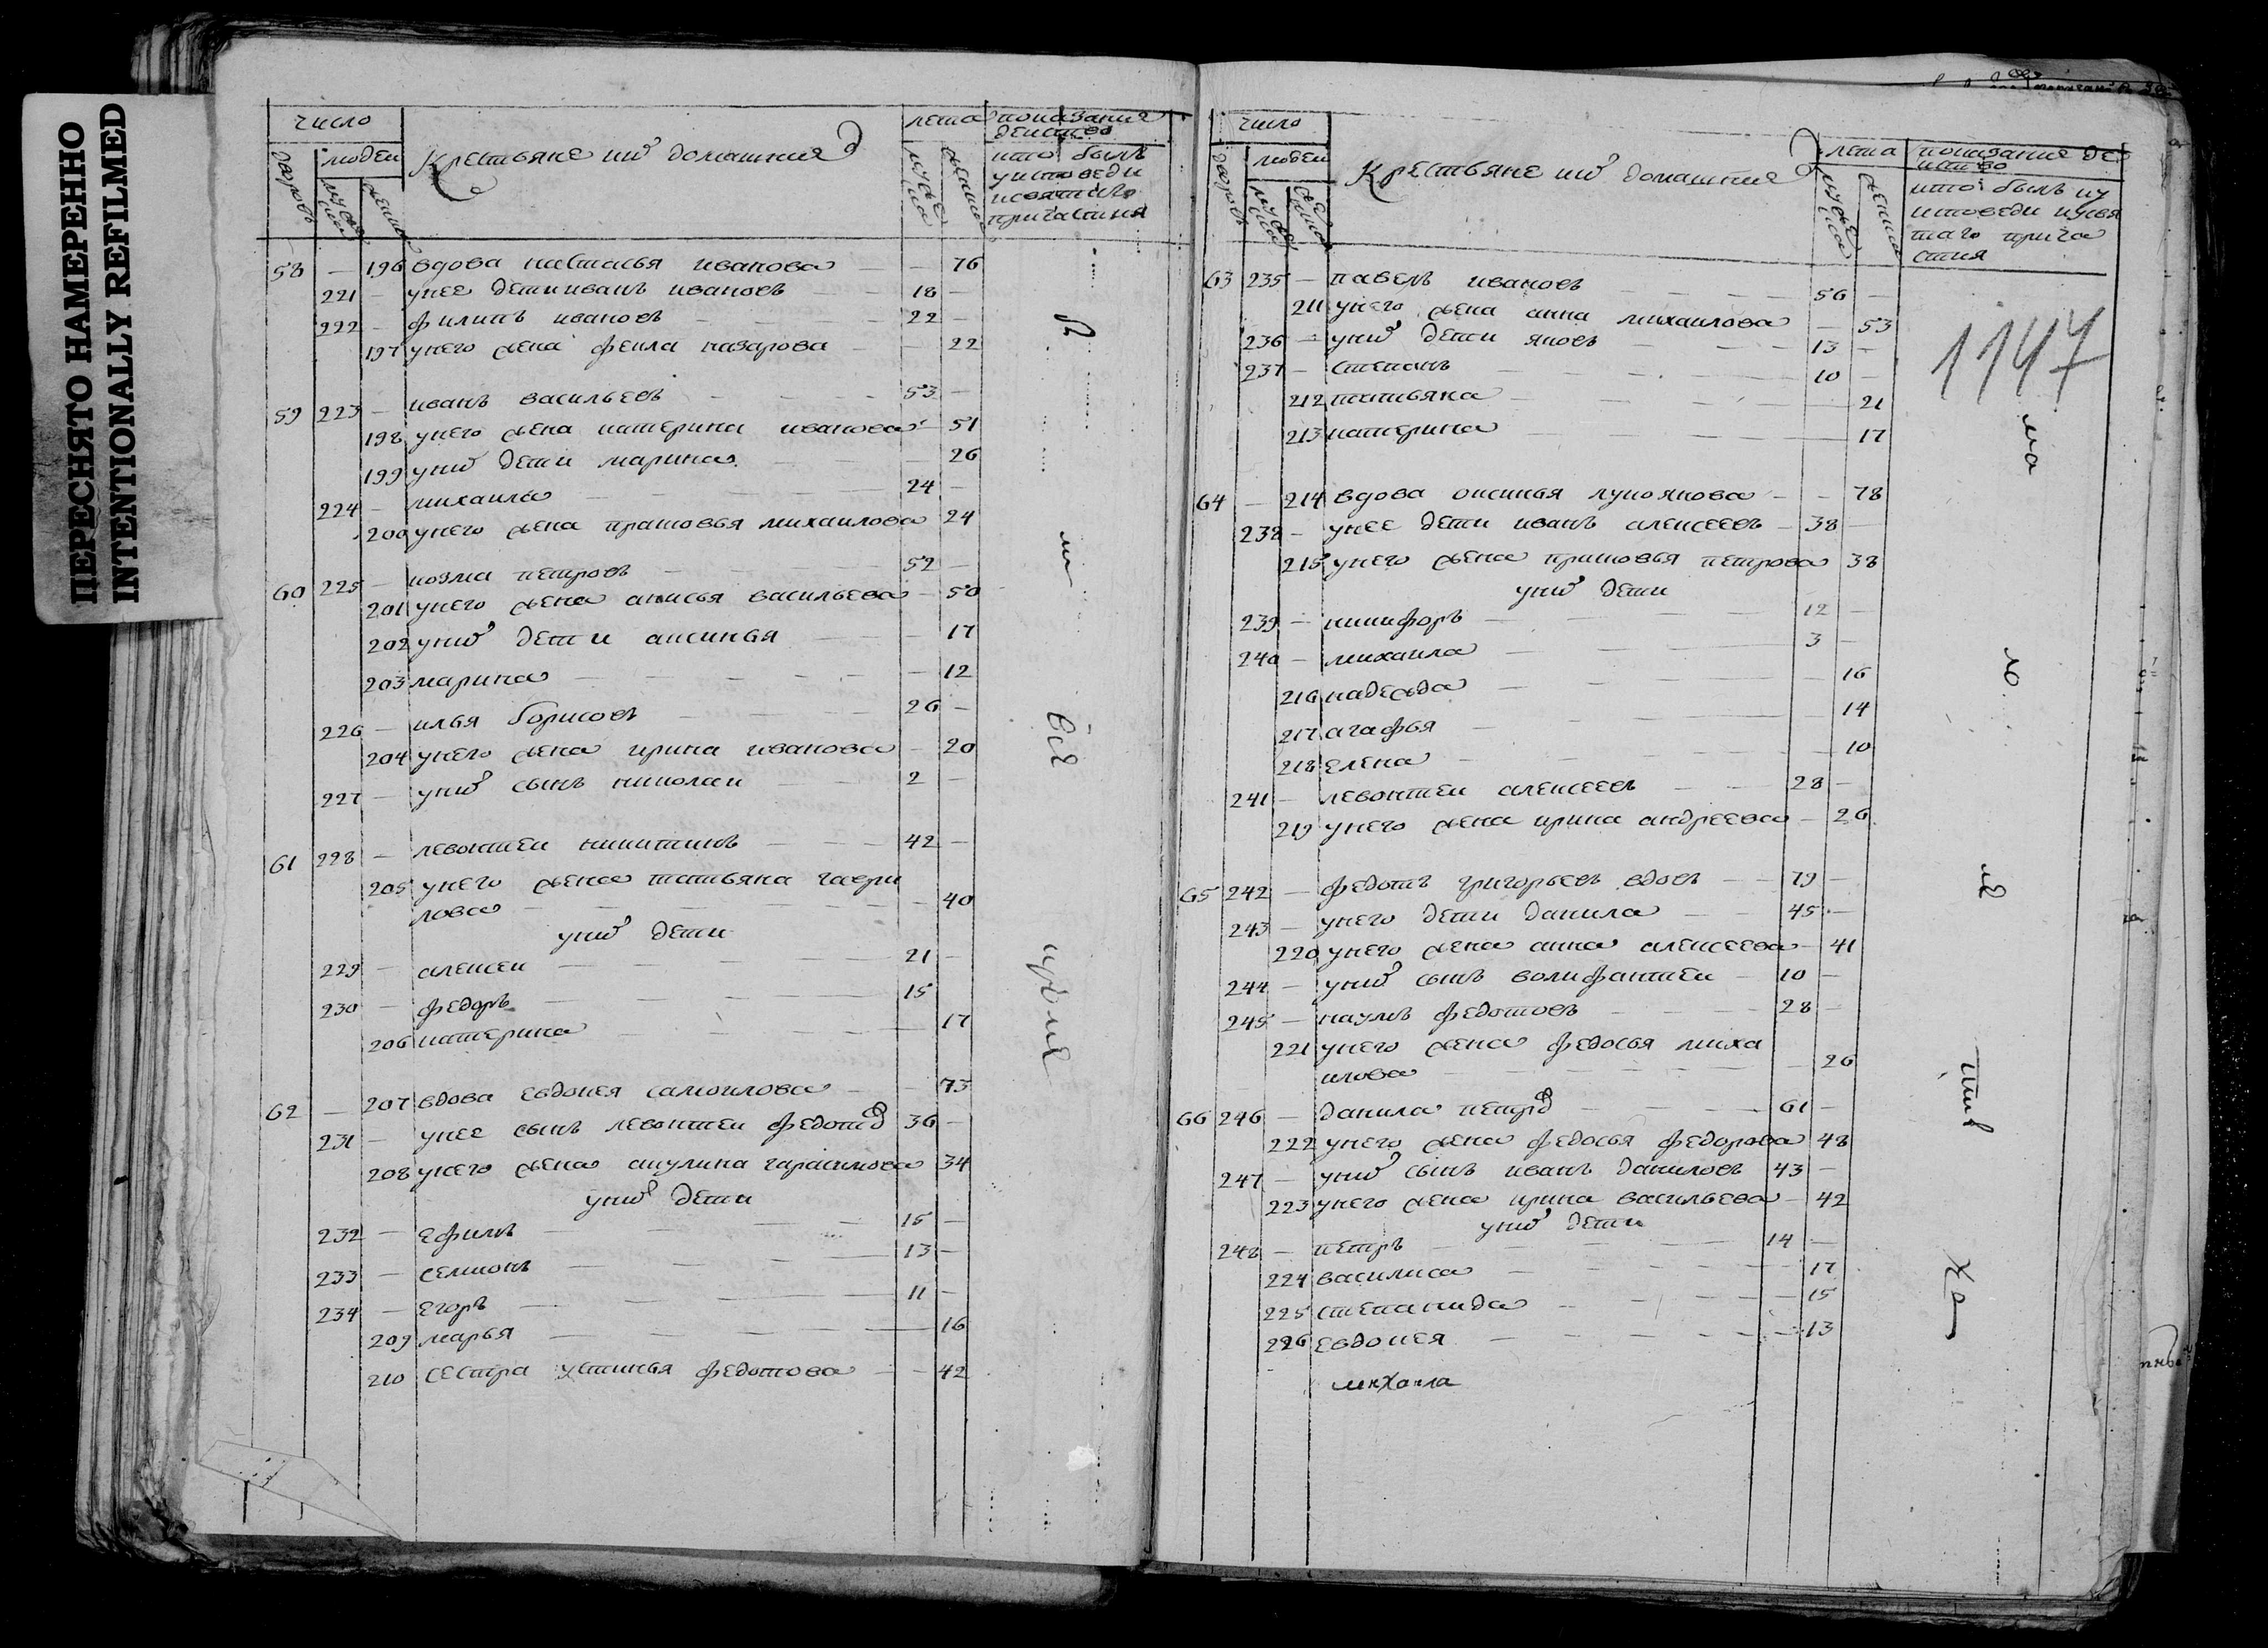 ПЕРЕСНЯТО НАМЕРЕННО
INTENTIONALLY REFILMED
число
крестьяне их домашния
лета
показание
действа
дворовъ
людей
мужеска
женска
мужеска
женска
кто былъ
у исповеди
и святаго
причастия
58 — 196 вдова настасья иванова — — 76
221 — у нее дети иванъ ивановъ 18 —
222 — филипъ ивановъ — 22 —
197 у него жена фекла назарова — — 22
59 223 — иванъ васильевъ — 53 —
198 у него жена катерина иванова — 51
199 у них дети марина — 26
224 — михаила — 24 —
200 у него жена прасковья михаилова 24
60 225 — козма петровъ — 52 —
201 у него жена анисья васильева — 50
202 у них дети аксинья — 17
203 марина — — 12
226 — илья борисовъ — 26 —
204 у него жена ирина иванова — 20
227 — у них сынъ николаи — 2 —
61 228 — левонтеи никитинъ — 42 —
205 у него жена татьяна гаври
лова — — 40
у них дети
229 — алексеи — 21 —
230 — федоръ — 15
206 катерина — 17
62 — 207 вдова евдокея самоилова — — 73
231 — у нее сынъ левонтеи федотов 36 —
208 у него жена акулина гарасимова 34
у них дети
232 — ефимъ — 15 —
233 — семионъ — 13 —
234 — егоръ — 11 —
209 марья — 16
210 сестра устинья федотова — — 42
вся
число
крестьяне их домашние
лета
показание де
иства
дворовъ
людей
мужеска
женска
мужеска
женска
кто былъ иу
исповеди и у свя
таго прича
стия
1147
63 235 — павелъ ивановъ — 56 —
211 у него жена анна михаилова — 53
236 — у них дети яковъ — 13 —
237 — степанъ — 10 —
212 татьяна — 21
213 катерина — 17
64 — 214 вдова оксинья лукоянова — — 78
238 — у нее дети иванъ алексеевъ — 38 —
215 у него жена прасковья петрова 38
у них дети
239 — никифоръ — 12 —
240 — михаила — 3 —
216 надежда — 16
217 агафья — 14
218 елена — — 10
241 — левонтеи алексеевъ — 28 —
219 у него жена ирина андреева — 26
65 242 — федотъ григорьевъ вдовъ — 79 —
243 — у него дети данила — 45 —
220 у него жена анна алексеева — 41
244 — у них сынъ волифантеи — 10 —
245 — наумъ федотовъ — 28 —
221 у него жена федосья миха
илова — — 26
66 246 — данила петров — 61 —
222 у него жена федосья федорова 48
247 — у них сынъ иванъ даниловъ 43 —
223 у него жена ирина васильева — 42
у них дети
248 — петръ — 14 —
224 василиса — 17
225 степанида — 15
226 евдокея — 13
михаила